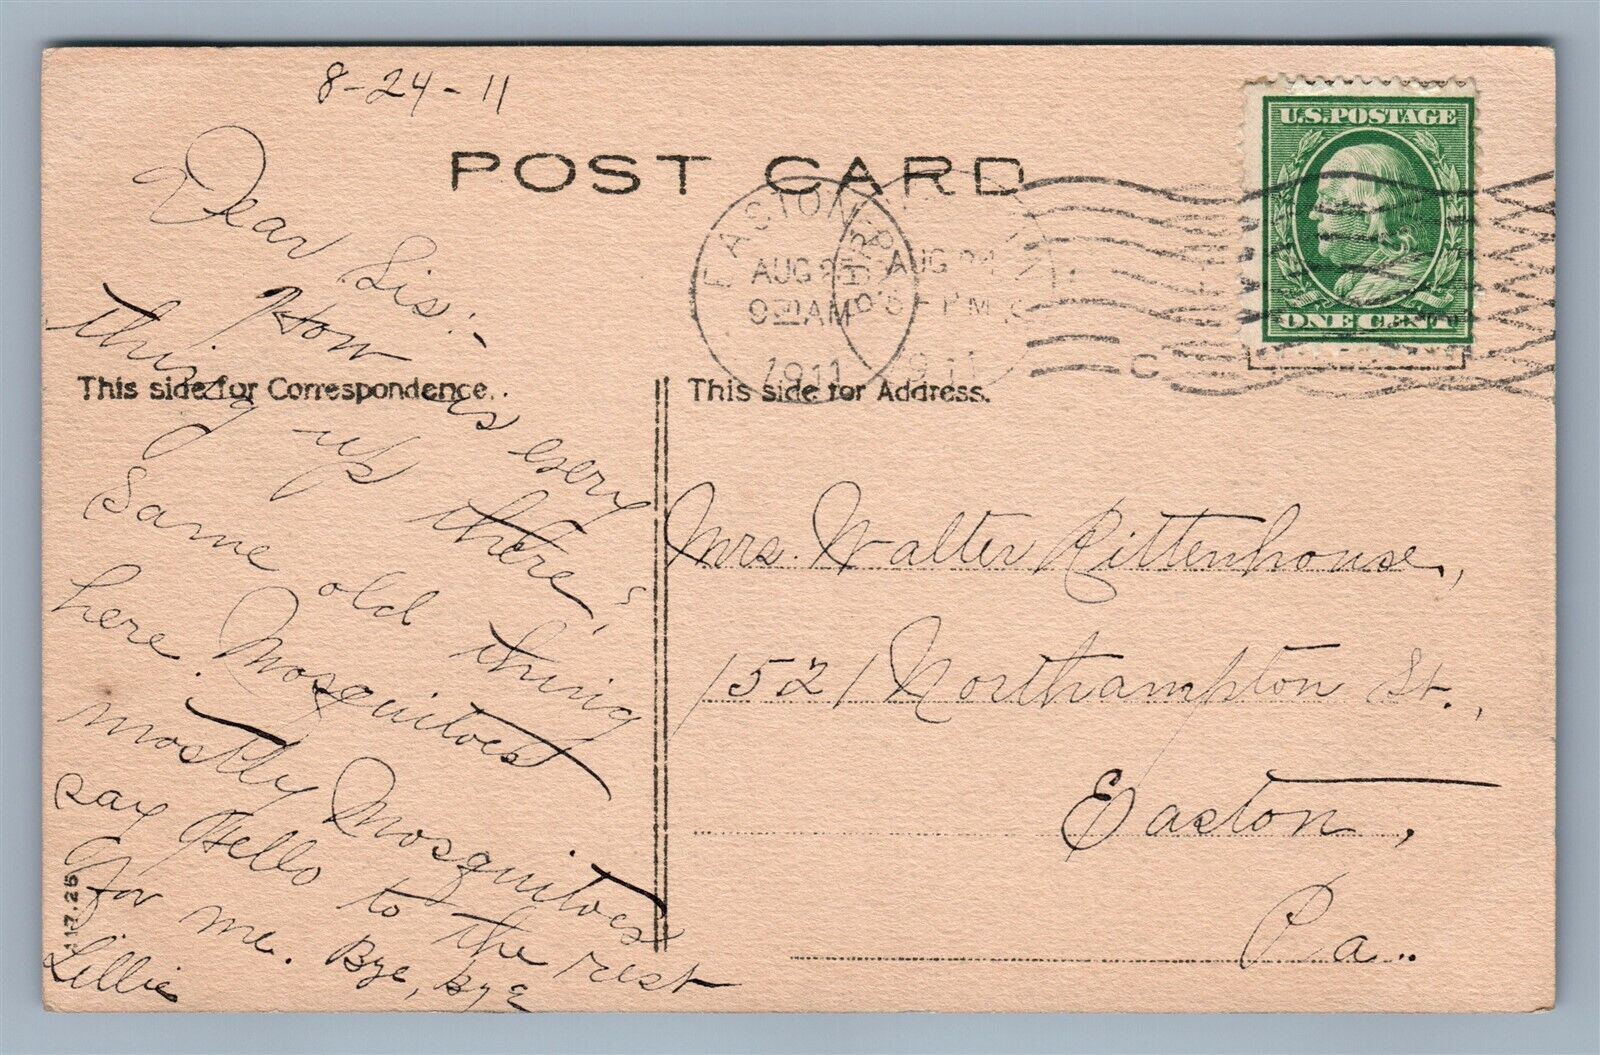 8-24-11
POST CARD
U.S.POSTAGE
ONE CENT
EASTON
AUG 25
9 30 AM
1911
AUG 24
P.M.
1911
This side for Correspondence.
This side for Address.
Dear Sis:-
How is every
thing up there?
Same old thing
here. Mosquitoes
mostly Mosquitoes
say Hello to the rest
for me. Bye, bye
Lillie
117.25
Mrs. Walter Rittenhouse,
1521 Northampton St.,
Easton,
Pa..